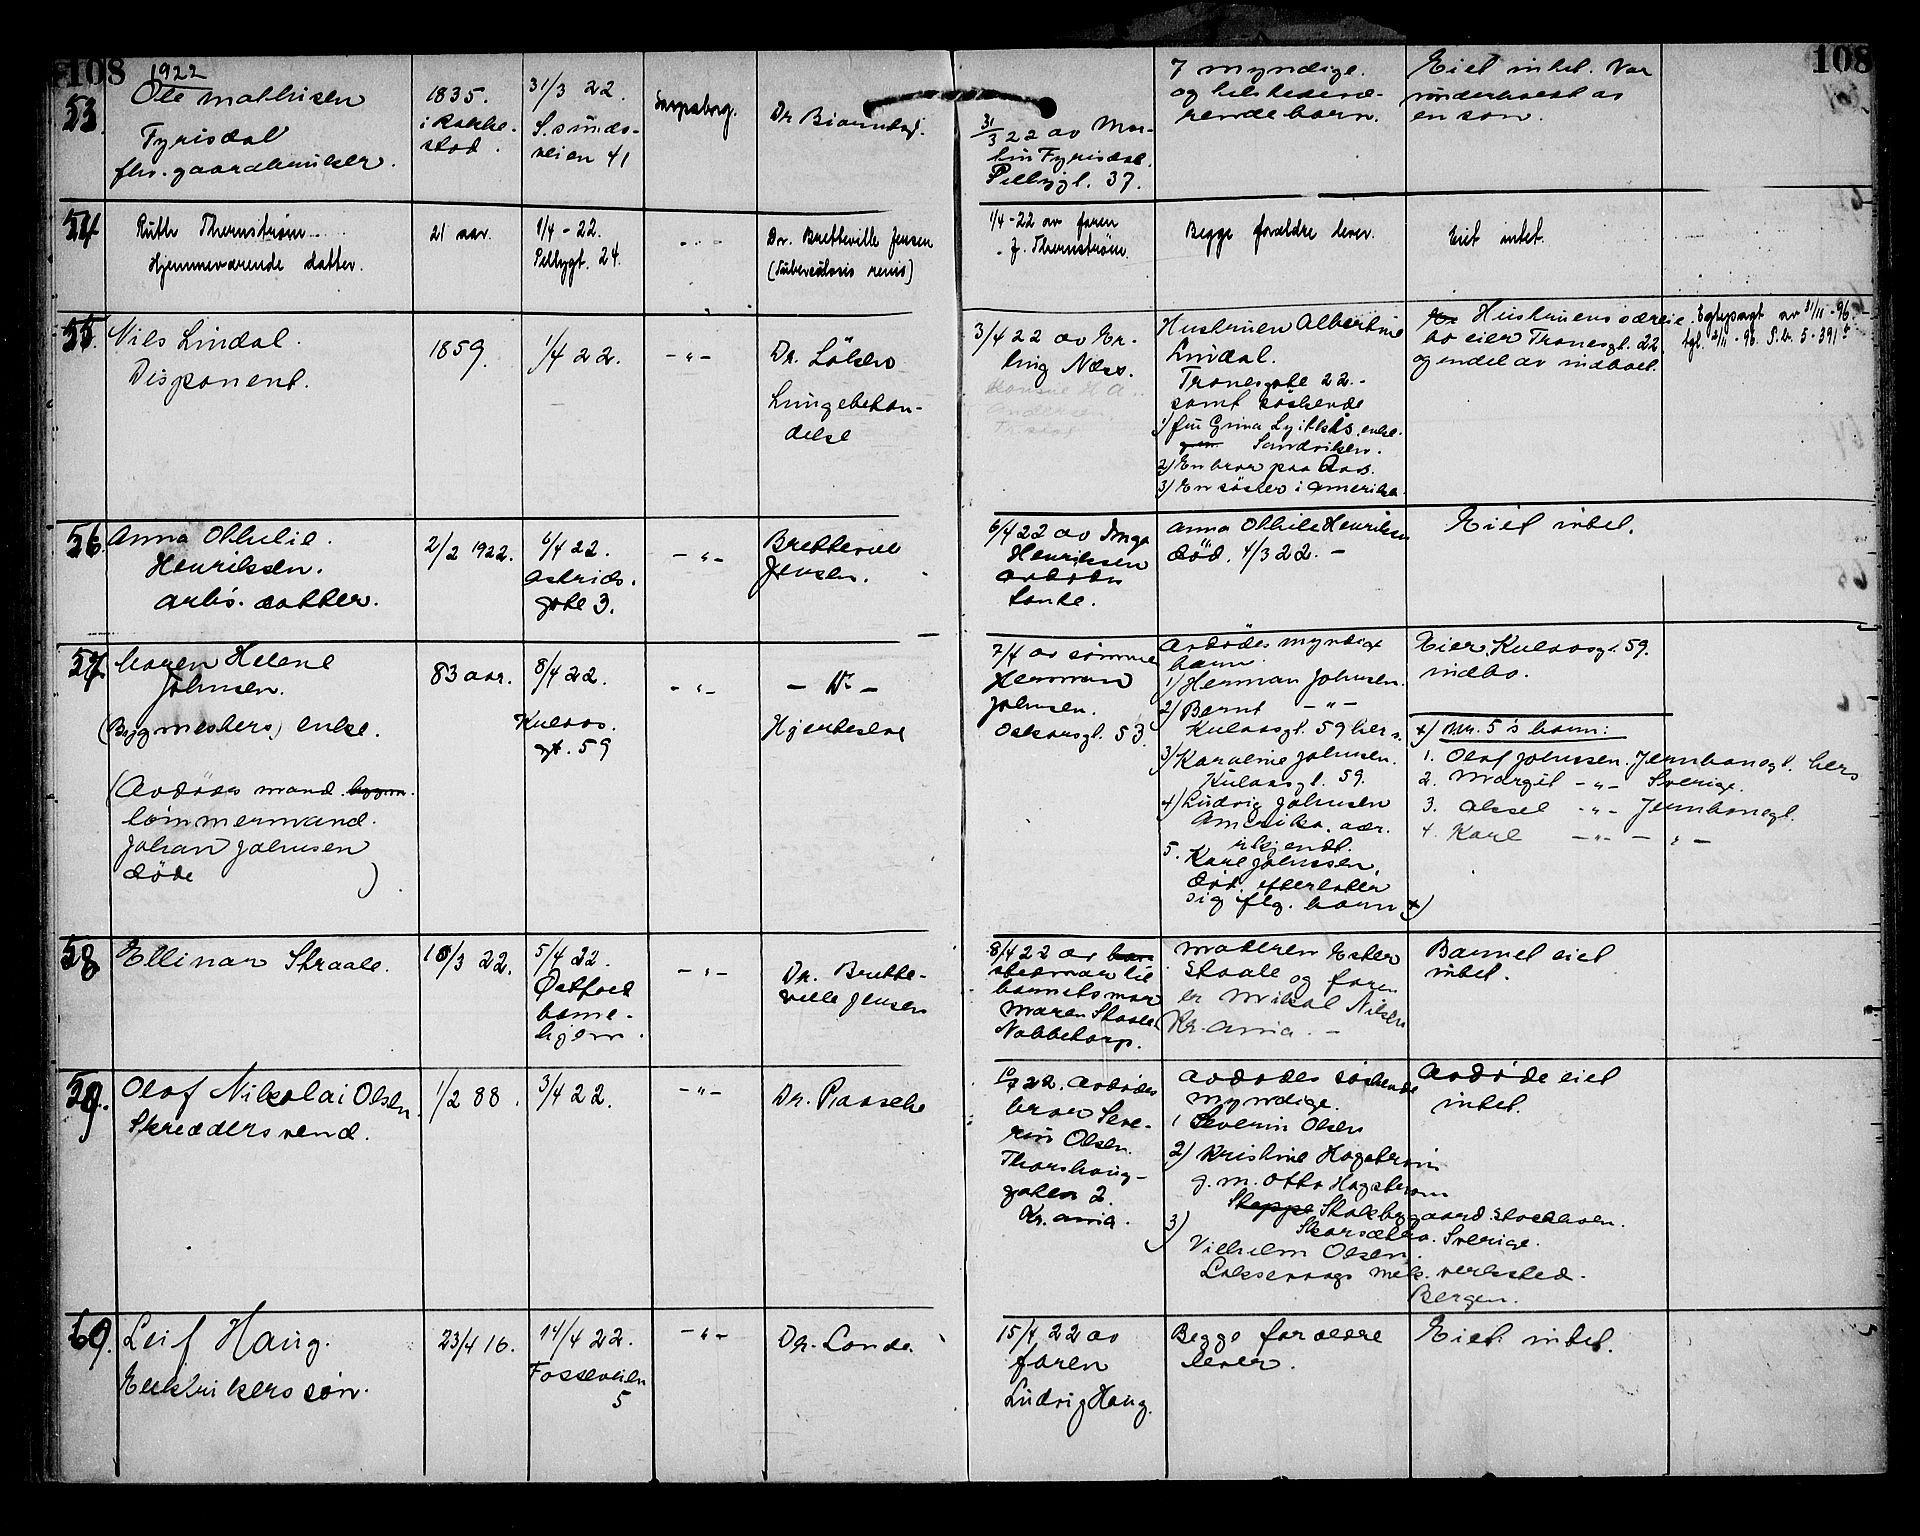 108
108
1922
53.
Ole Mathisen
Tyrisdal
fhv. gaardbruker.
1835.
i Rakke-
stad.
31/3 22.
S.sunds-
veien 41
Sarpsborg.
Dr
31/3 22 av Mar-
tin Tyrisdal.
Pellygt. 37.
7 myndige.
og tilstedevæ-
rende barn.
Eiet intet. Var
underholdt av
en søn.
54
Ruth Thernstrøm
Hjemmeværende datter.
21 aar.
1/4 - 22.
Pellygt. 24.
- " -
Dr. Bretteville Jensen
(Tuberculosis renis)
1/4 - 22 av faren
J. Thernstrøm.
Begge forældre lever.
Eiet intet.
55.
Nils Lindal.
Disponent.
1859.
1/4 22.
- " -
Dr.
Lungebeten-
delse
3/4 22 av Er-
ling Næss.
Andersen.
Hustruen Albertine
Lindal.
Tranesgate 22.-
samt søskende
1) fru Grina enke.
Sandviken.
2) En bror paa Aas.
3) En søster i Amerika.
Hustruens særeie
bo eier Tranesgt. 22
og endel av indboet.
Egtepagt av 21/11 - 96
tgl. 2/11 - 96. P.b. 5-391
56.
Anna Othilie
Henriksen.
arbs. datter.
2/2 1922.
6/4 22.
Astrids-
gate 3.
- " -
Bretteville
Jensen.
6/4 22 av Inga
Henriksen
avdødes
tante.
Anna Othilie Henriksen
død. 4/3 22. -
Eiet intet.
57.
Maren Helene
Johnsen.
(Bygmesters) enke.
(Avdødes mand bygm.
tømmermand
Johan Johnsen
døde )
83 aar.
8/4 22.
Kulaas-
gt. 59
- " -
- Dr -
Hjerteslag
7/4 av sønnen
Herman
Johnsen.
Oskarsgt. 53.
Avdødes myndige
barn.
1) Herman Johnsen.
2) Bernt - " -
Kulaasgt. 59 her s.
3) Karoline Johnsen.
Kulaasgt. 59.
4) Ludvig Johnsen
Amerika. adr.
ukjendt.
5. Karl Johnsen,
død. efterlater
sig flg. barn x)
Eier Kulaasgt. 59.
indbo.
x) Nr. 5's barn:
1. Olaf Johnsen. Jernbanegt. hers
2. Margit - " - Sverige.
3. Aksel - " - Jernbanegt.
4. Karl - " - - " -
58
Ellinar Straale.
10/3 22.
5/4 22.
Østfold
barne-
hjem.
- " -
Dr. Brette-
ville Jensen
8/4 22 av
stedmor til
barnets mor
Maren Staale
Nabbetorp.
Moderen Ester
Staale og faren
er Mikal Nilsen
Kr.ania. -
Barnet eiet
intet.
59.
Olaf Nikolai Olsen.
Skræddersvend.
1/2 88.
3/4 22.
- " -
Dr. Paasche
10/4 22. Avdødes
bror Seve-
rin Olsen.
Thorshaug-
gaten 2.
Kr.ania.
Avdødes søskende
myndige.
1 Severin Olsen
2) Kristine Hagstrøm
g. m. Otto Hagstrøm
Stoppe
Skarsætra. Sverige.
3)
Vilhelm Olsen.
Laksevaags mek. verksted.
Bergen.
Avdøde eiet
intet.
60.
Leif Haug.
Elektrikers søn.
23/4 16.
14/4 22.
Fosseveien
5
- " -
Dr. Londe.
15/4 22 av
faren
Ludvig Haug.
Begge forældre
lever.
Eiet intet.